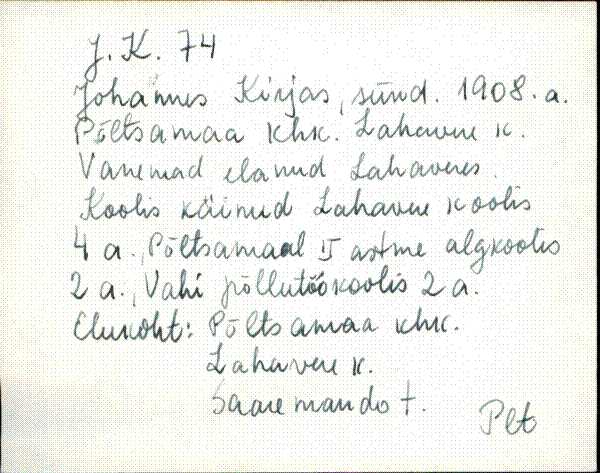 J. K. 74
Johannes Kirjas, sünd. 1908. a.
Põltsamaa khk. Lahavere k.
Vanemad elanud Lahaveres.
Koolis käinud Lahavere koolis
4 a., Põltsamaal II astme algkoolis
2 a., Vahi põllutöökoolis 2 a.
Elukoht: Põltsamaa khk.
Lahavere k.
Saaremando t.
Plt